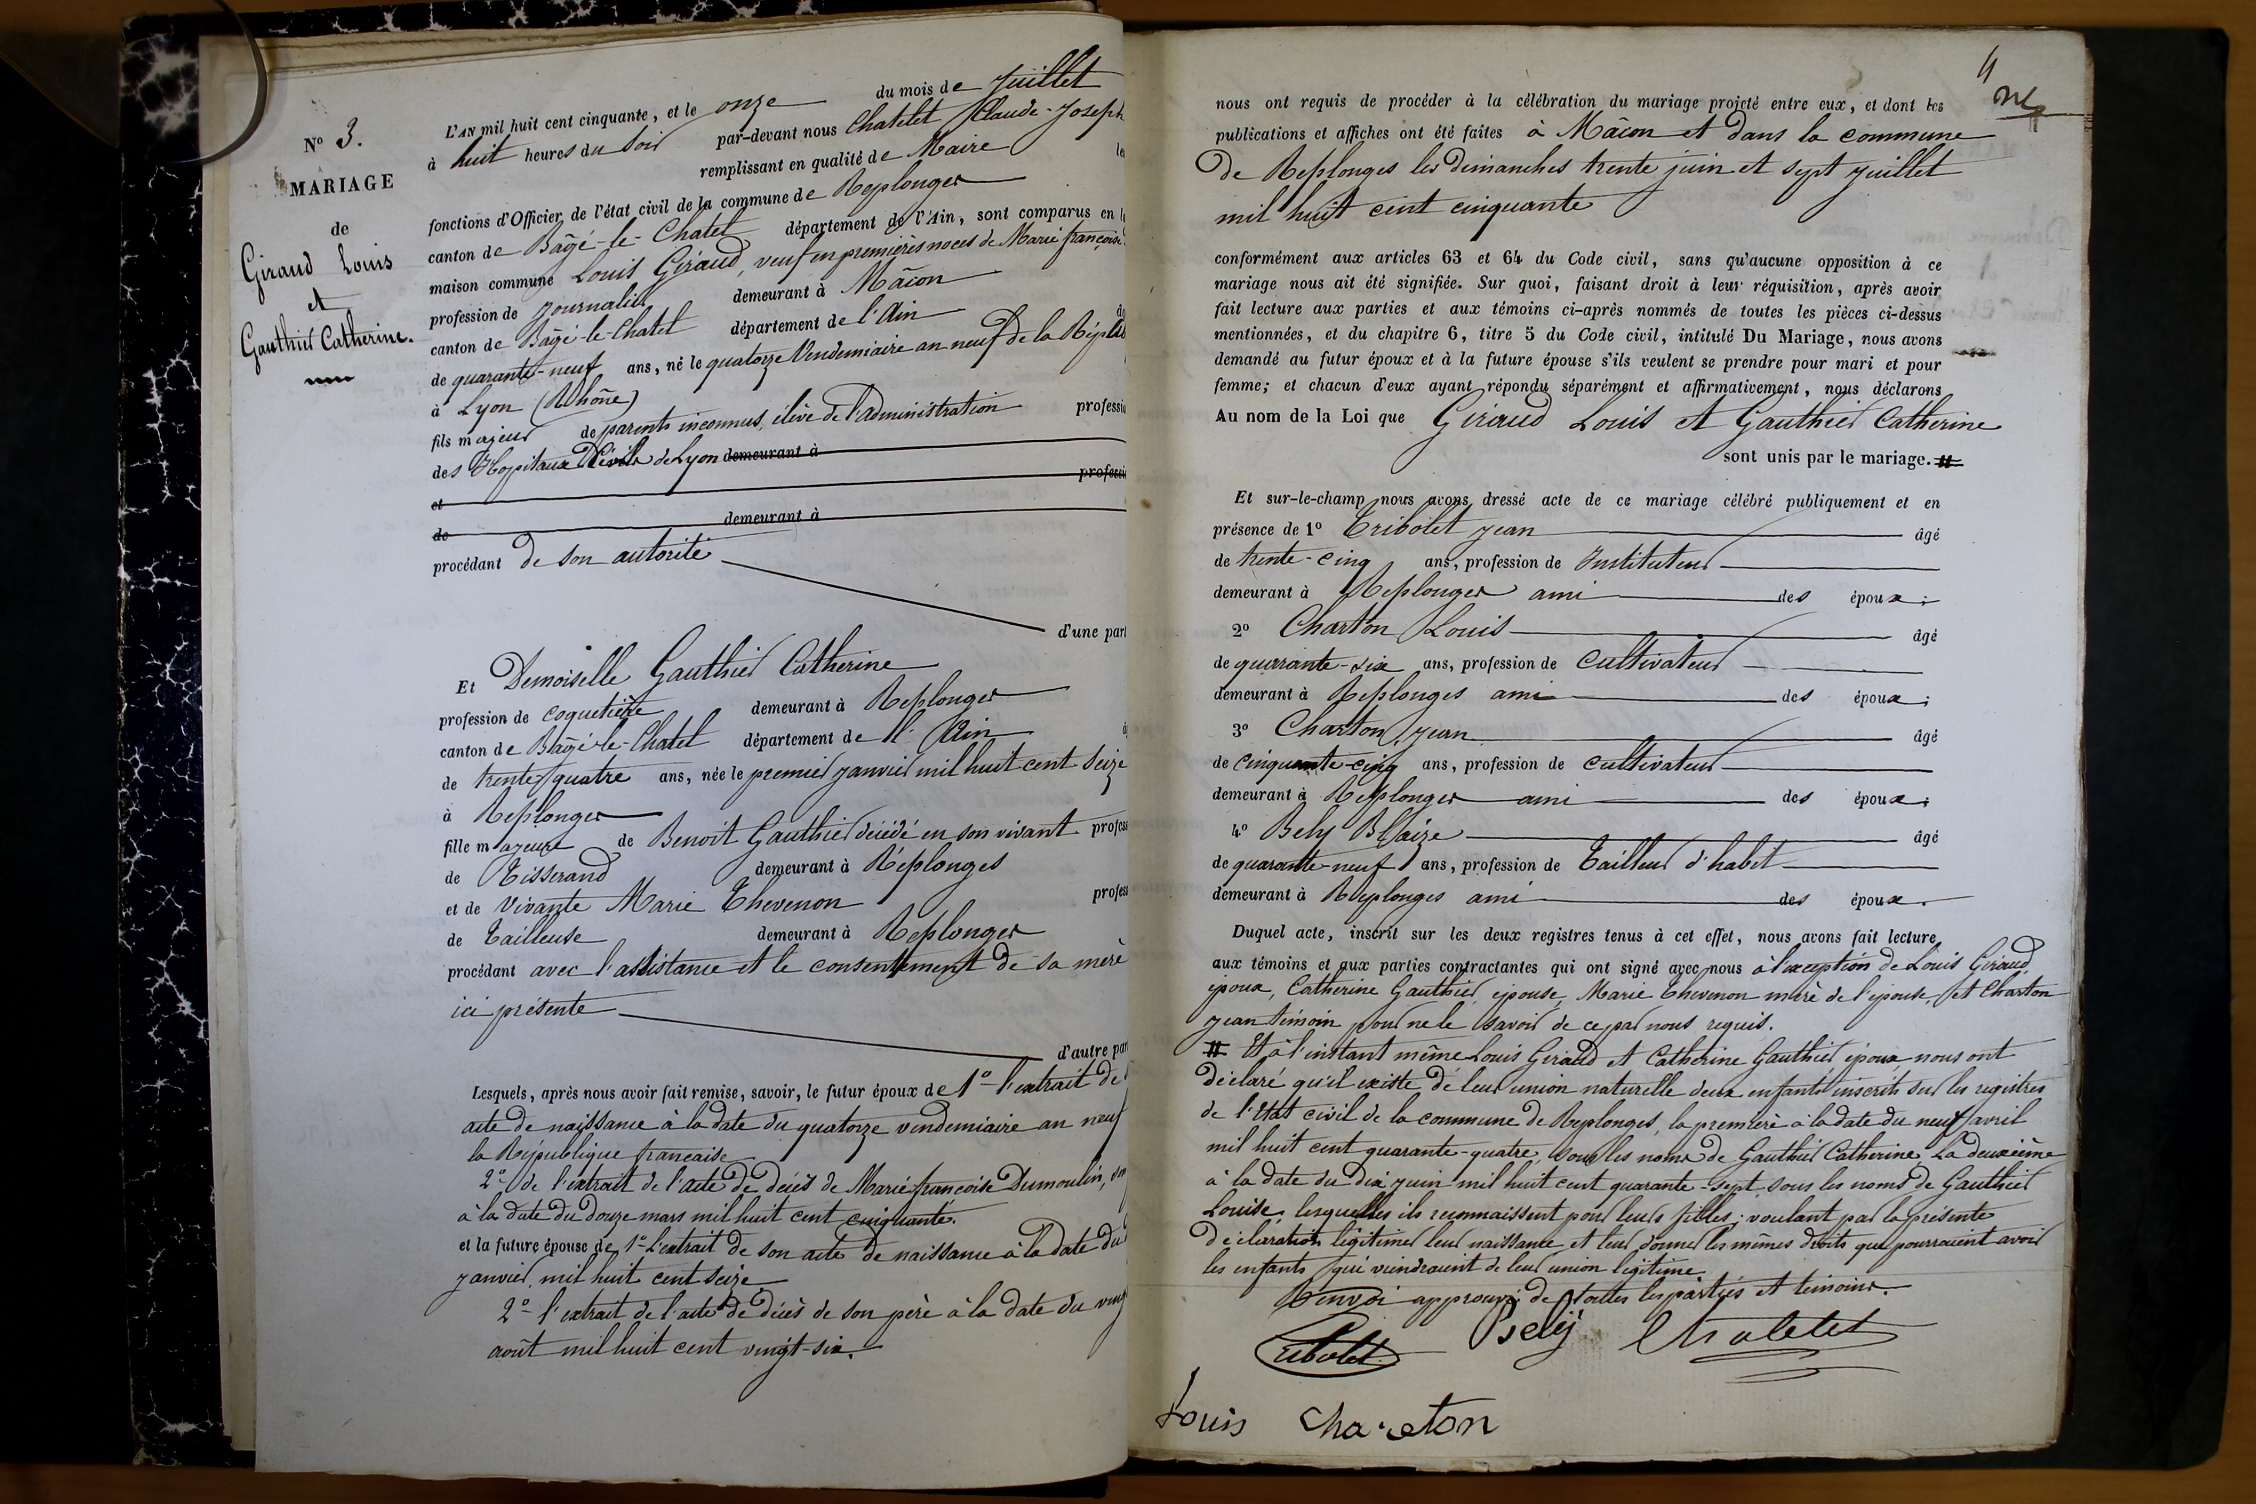 N° 3.
MARIAGE
de
Giraud Louis
et
Gauthier Catherine.
L'AN mil huit cent cinquante, et le onze du mois de Juillet
à huit heures du soir par-devant nous Chatelet Claude-Joseph
remplissant en qualité de Maire les
fonctions d'Officier de l'état civil de la commune de Replonges
canton de Bâgé-le-Chatel département de l'Ain, sont comparus en la
maison commune Louis Giraud, veuf en premières noces de Marie françoise
profession de journalier demeurant à Mâcon
canton de Bâgé-le-Chatel département de l'Ain
de quarante-neuf ans, né le quatorze Vendemiaire an neuf de la Répub
à Lyon (Rhône)
fils majeur de parents inconnus, élève de l'administration professio
des Hopitaux Civils de Lyon demeurant à
et professio
de demeurant à
procédant de son autorité
d'une part
Et Demoiselle Gauthier Catherine
profession de coquetière demeurant à Replonges
canton de Bâgé-le-Chatel département de l'Ain
de trente quatre ans, née le premier janvier mil huit cent seize
à Replonges
fille majeure de Benoit Gauthier décédé en son vivant profess
de Tisserand demeurant à Réplonges
et de vivante Marie Thevenon profess
de Tailleuse demeurant à Replonges
procédant avec l'assistance et le consentement de sa mère
ici présente
d'autre par
Lesquels, après nous avoir fait remise, savoir, le futur époux de 1° l'extrait de
acte de naissance à la date du quatorze vendemiaire an neuf
la République francaise
2° de l'extrait de l'acte de décès de Marie françoise Dumoulin,
à la date du douze mars mil huit cent cinquante.
et la future épouse de 1° l'extrait de son acte de naissance à la date du
janvier mil huit cent seize
2° l'extrait de l'acte de décès de son père à la date du ving
août mil huit cent vingt-six.
4
nous ont requis de procéder à la célébration du mariage projeté entre eux, et dont les
publications et affiches ont été faites à Mâcon et dans la commune
de Replonges les dimanches trente juin et sept juillet
mil huit cent cinquante
conformément aux articles 63 et 64 du Code civil, sans qu'aucune opposition à ce
mariage nous ait été signifiée. Sur quoi, faisant droit à leur réquisition, après avoir
fait lecture aux parties et aux témoins ci-après nommés de toutes les pièces ci-dessus
mentionnées, et du chapitre 6, titre 5 du Code civil, intitulé Du Mariage, nous avons
demandé au futur époux et à la future épouse s'ils veulent se prendre pour mari et pour
femme; et chacun d'eux ayant répondu séparément et affirmativement, nous déclarons
Au nom de la Loi que Giraud Louis et Gauthier Catherine
sont unis par le mariage. #
Et sur-le-champ nous avons dressé acte de ce mariage célébré publiquement et en
présence de 1° Tribolet jean âgé
de trente-cinq ans, profession de Instituteur
demeurant à Replonges ami des époux;
2° Charton Louis âgé
de quarante-six ans, profession de cultivateur
demeurant à Replonges ami des époux;
3° Charton jean âgé
de cinquante-cinq ans, profession de cultivateur
demeurant à Replonges ami des époux;
4° Bely Blaize âgé
de quarante-neuf ans, profession de Tailleur d'habit
demeurant à Replonges ami des époux.
Duquel acte, inscrit sur les deux registres tenus à cet effet, nous avons fait lecture
aux témoins et aux parties contractantes qui ont signé avec nous à l'exception de Louis Giraud,
époux, Catherine Gauthier, épouse, Marie Thevenon mère de l'épouse, et Charton
jean témoin pour ne le savoir de ce par nous requis.
# Et à l'instant même Louis Giraud et Catherine Gauthier époux nous ont
déclaré qu'il existe de leur union naturelle deux enfants inscrits sur les registres
de l'Etat civil de la commune de Replonges, la première à la date du neuf avril
mil huit cent quarante-quatre, sous les noms de Gauthier Catherine La deuxième
à la date du dix juin mil huit cent quarante-sept, sous les noms de Gauthier
Louise, lesquelles ils reconnaissent pour leurs filles; voulant par la présente
déclaration légitimer leur naissance et leur donner les mêmes droits que pourraient avoir
les enfants qui viendraient de leur union légitime.
Renvoi approuvé de toutes les parties et témoins.
Tribolet Bely Chatelet
Louis Charton